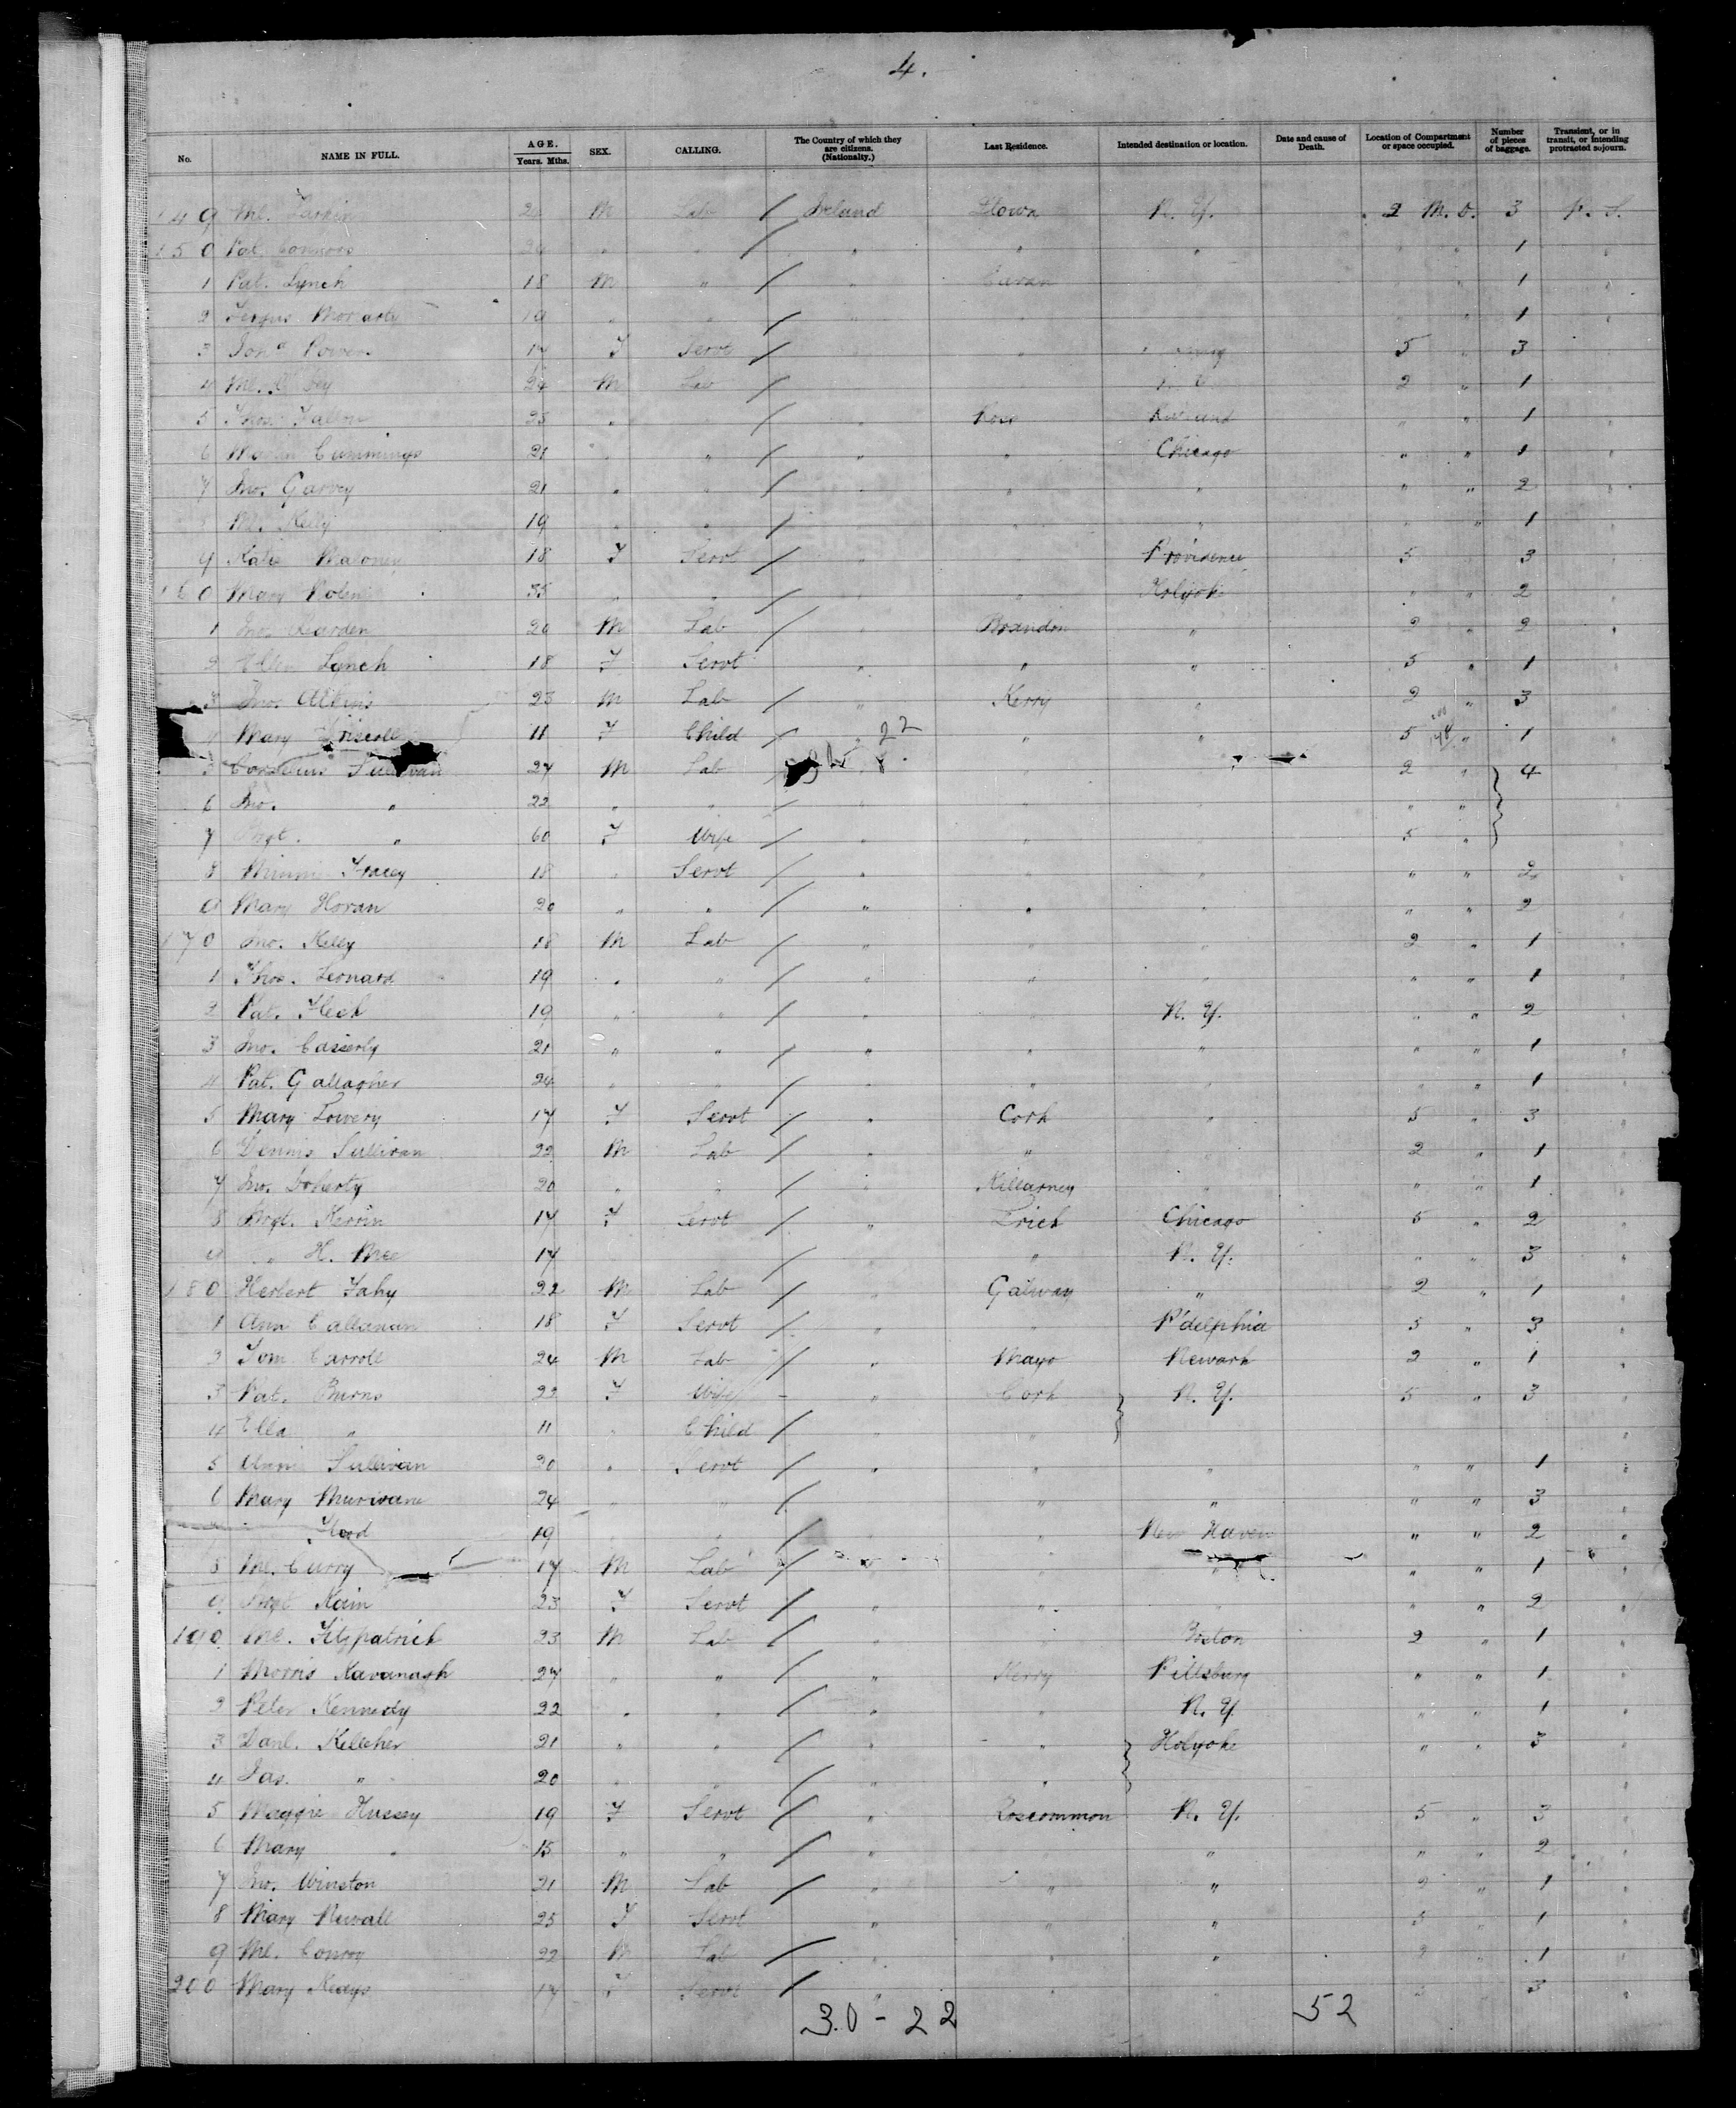 4.
No. NAME IN FULL. AGE. Years. Mths. SEX. CALLING. The Country of which they are citizens. (Nationality.) Last Residence. Intended destination or location. Date and cause of Death. Location of Compartment or space occupied. Number of pieces of baggage. Transient, or in transit, or intending protracted sojourn.
149 Ml. M Lab / Ireland N. Y. 2 M. D. 3 P. S.
150 Pat. Connors " " / " " " " " 1 "
1 Pat. Lynch 18 M " / " Cavan " 1 "
2 Moriarty " " / " " 1 "
3 Powers 17 F Servt / " 5 " 3
4 Ml. 24 M Lab / 2 " 1
5 Thos. Fallon 25 " " / " " " 1
6 Martin Cummings 21 " " / " " Chicago " " 1 "
7 Jno. Garvey 21 " " / " " " " " 2 "
M. Kelly 19 " " / " " " " " 1
9 Katie Maloney 18 F Servt / " Providence 5 " 3
160 Mary 35 " " / " " Holyoke " " 2
1 Jno. Rearden 20 M Lab / " Brandon " 2 " 2 "
2 Ellen Lynch 18 F Servt " " " 5 " 1
3 Jno. Atkins 23 M Lab / " Kerry " 2 " 3
4 Mary Driscoll 11 F Child / " 22 " " 5 " 1
5 Cornelius Sullivan 24 M Lab " " 2 " 4
6 Jno. " 22 " " / " " " "
7 Mgt. " 60 F Wife / " " " 5 "
8 Minnie Tracey 18 " Servt / " " " " " 2
9 Mary Horan 20 " " / " " " " " 2
170 Jno. Kelly 18 M Lab / " " " 2 " 1
1 Thos. Leonard 19 " " / " " " " " 1 "
2 Pat. 19 " " / " " N. Y. " " 2
3 Jno. Casserly 21 " " / " " " " " 1 "
4 Pat. Gallagher 24 " " / " " " " " 1 "
5 Mary Lowery 17 F Servt / " Cork " 5 " 3 "
6 Dennis Sullivan 22 M Lab / " " " 2 " 1 "
7 Jno. Doherty 20 " " / " Killarney " " " 1 "
8 Mgt. Kerrin 17 F Servt / " Chicago 5 " 2 "
9 " H. Mee 17 / " N. Y. " " 3 "
180 Herbert Fahy 22 M Lab / " Galway " 2 " 1 "
1 Ann Callanan 18 F Servt / " " P'delphia 5 " 3 "
2 Tom Carroll 24 M Lab / " Mayo Newark 2 " 1 "
3 Pat. Burns 22 F Wife - " Cork N. Y. 5 " 3 "
4 Ella " 11 " Child / " " "
5 Annie Sullivan 20 " Servt / " " " " " 1 "
6 Mary 24 " " / " " " " 3 "
19 " / " " New Haven " " 2 "
8 Ml. Curry 17 M Lab / " " " " 1 "
9 Mgt Kain 23 F Servt / " " " " " 2 "
190 Ml. Fitzpatrick 23 M Lab / " Boston 2 " 1 "
1 Morris Kavanagh 27 " " / " Kerry Pittsburg " " 1 "
2 Peter Kennedy 22 " " / " " N. Y. " " 1 "
3 Danl. Kelleher 21 " " / " " Holyoke " " 3 "
4 Jas. " 20 " " / " " "
5 Maggie Hussey 19 F Servt / " Roscommon N. Y. 5 " 3 "
6 Mary " 15 " " / " " " " " 2 "
7 Jno. Winston 21 M Lab / " " " 2 " 1 "
8 Mary Newall 25 F Servt " " " 5 " 1 "
9 Ml. Conroy 22 M Lab / " " " 2 " 1 "
200 Mary Keays 17 F Servt / " " " " 3 "
30 - 22 52